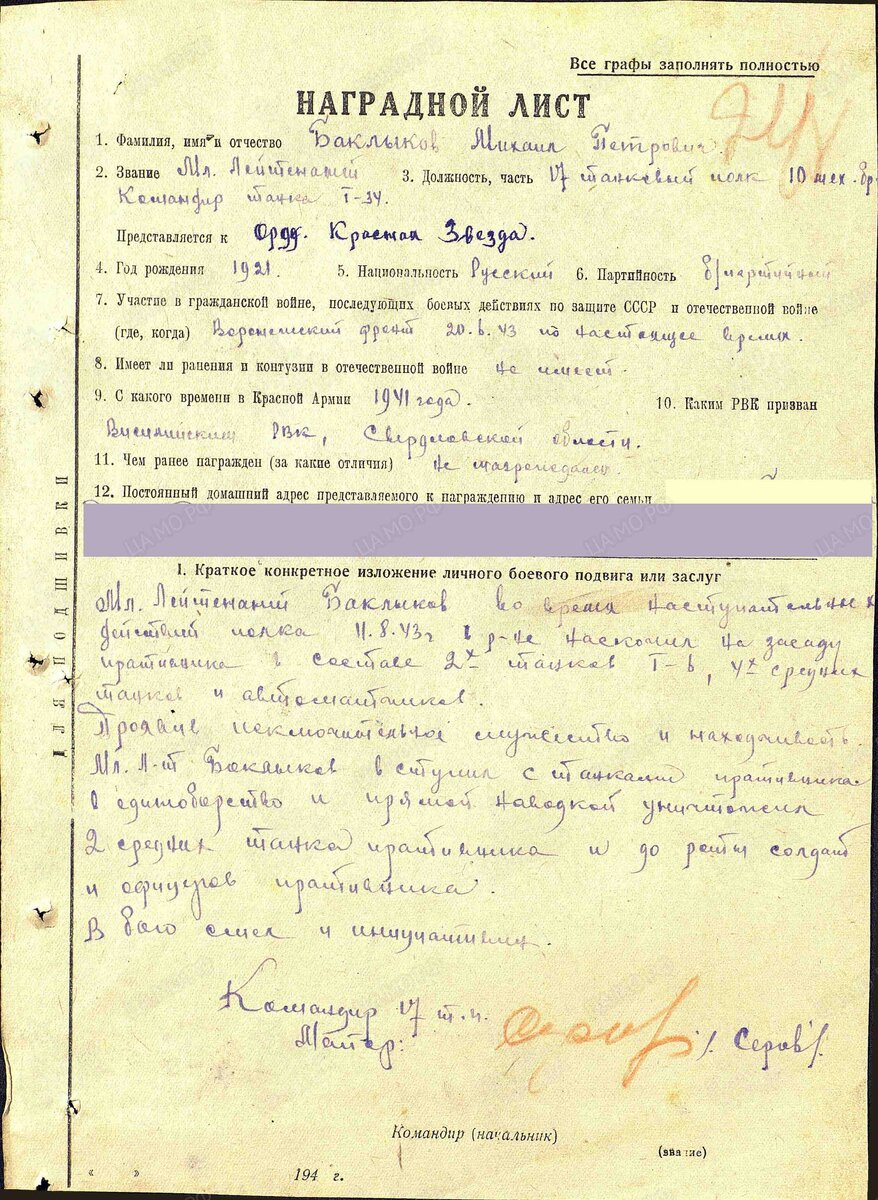 Все графы заполнять полностью
НАГРАДНОЙ ЛИСТ
1. Фамилия, имя и отчество Баклыков Михаил Петрович
2. Звание Мл. Лейтенант 3. Должность, часть 17 танковый полк 10 мех. бр.
Командир танка Т-34.
Представляется к Орд. Красная Звезда.
4. Год рождения 1921. 5. Национальность Русский 6. Партийность б/партийный
7. Участие в гражданской войне, последующих боевых действиях по защите СССР и отечественной войне
(где, когда) Воронежский фронт 20.6.43 по настоящее время.
8. Имеет ли ранения и контузии в отечественной войне не имеет
9. С какого времени в Красной Армии 1941 года. 10. Каким РВК призван
РВК, Свердловской области.
11. Чем ранее награжден (за какие отличия) не
12. Постоянный домашний адрес представляемого к награждению и адрес его семьи
ЦАМО РФ
I. Краткое конкретное изложение личного боевого подвига или заслуг
Мл. Лейтенант Баклыков во время наступательных
действий полка 11.8.43г в р-не наскочил на засаду
противника в составе 2х танков Т-6, 4х средних
танков и автоматчиков.
Проявив исключительное мужество и находчивость
Мл. Л-т Баклыков вступил с танками противника
в единоборство и прямой наводкой уничтожил
2 средних танка противника и до роты солдат
и офицеров противника.
В бою смел и инициативен.
Командир 17 т.п.
Майор: /Серов/.
Командир (начальник)
(звание)
« » 194 г.
ДЛЯ ПОДШИВКИ